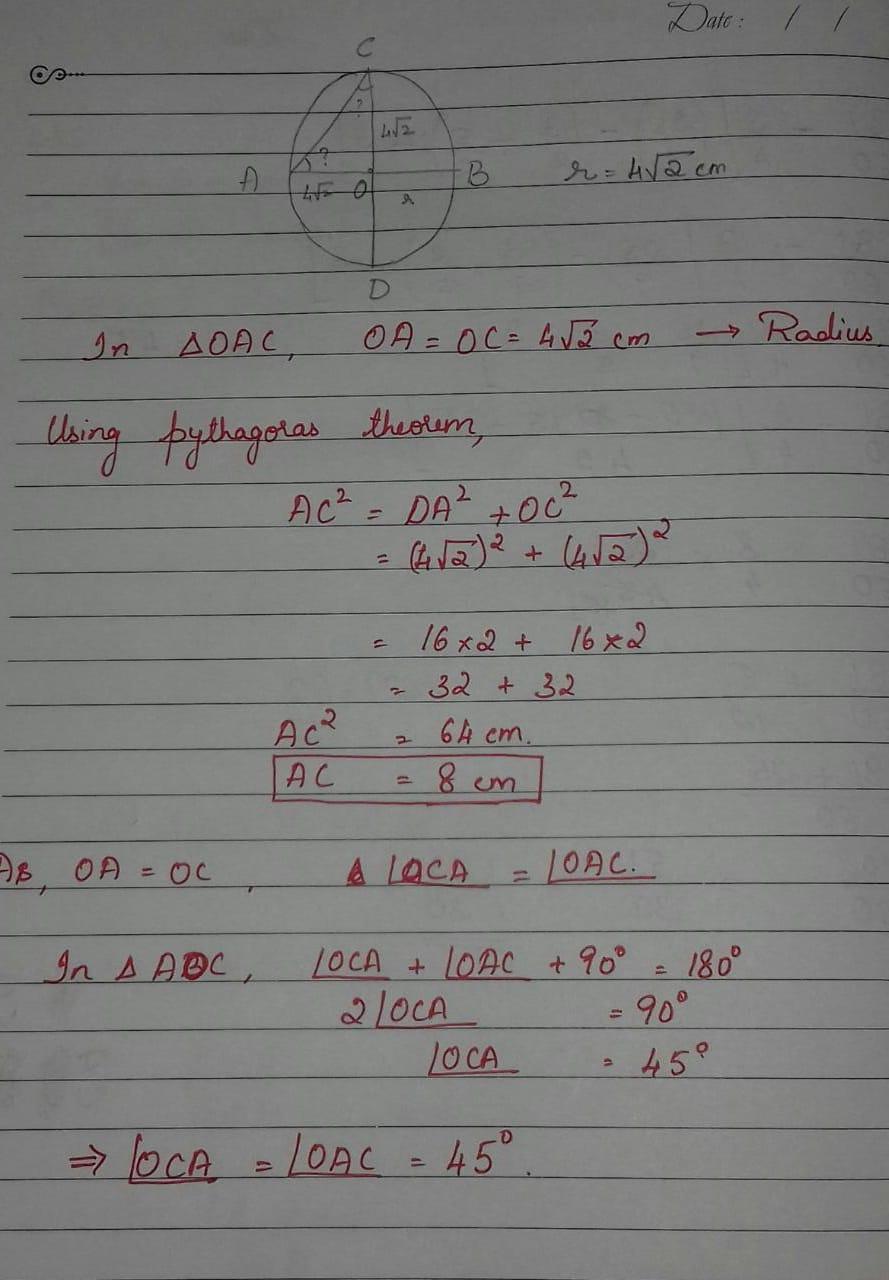 Date: / /
C
?
4√2
?
A
B
r = 4√2 cm
4√2
O
r
D
In ΔOAC, OA = OC = 4√2 cm → Radius
Using pythagoras theorem,
AC² = OA² + OC²
= (4√2)² + (4√2)²
= 16×2 + 16×2
= 32 + 32
AC² = 64 cm.
AC = 8 cm
As, OA = OC, ∠OCA = ∠OAC.
In Δ AOC, ∠OCA + ∠OAC + 90° = 180°
2∠OCA = 90°
∠OCA = 45°
⇒ ∠OCA = ∠OAC = 45°.